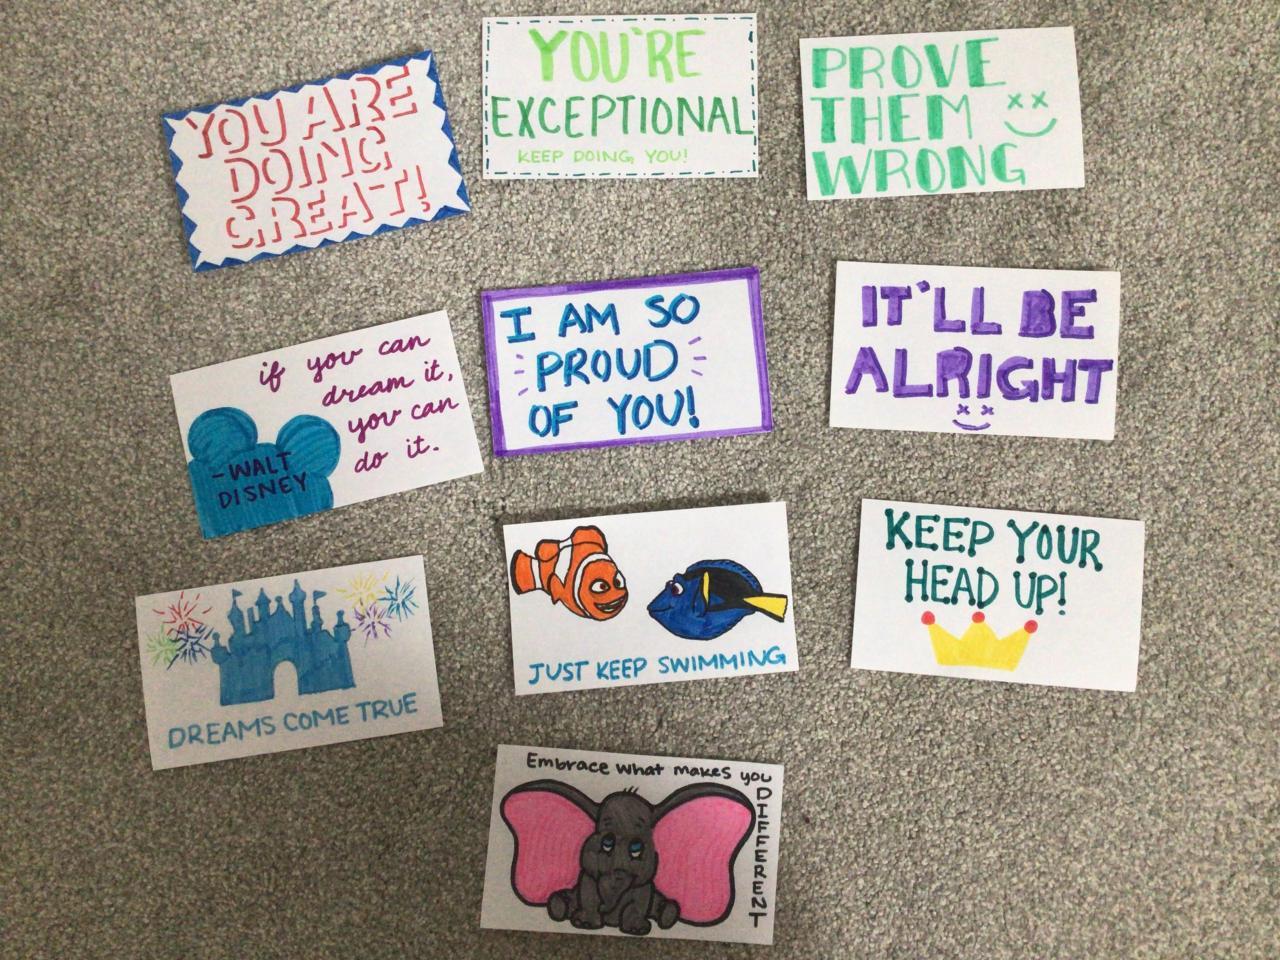 YOU ARE
DOING
GREAT!
YOU'RE
EXCEPTIONAL
KEEP DOING YOU!
PROVE
THEM
WRONG
if you can
dream it,
you can
do it.
-WALT
DISNEY
I AM SO
PROUD
OF YOU!
IT'LL BE
ALRIGHT
DREAMS COME TRUE
JUST KEEP SWIMMING
KEEP YOUR
HEAD UP!
Embrace what makes you
DIFFERENT